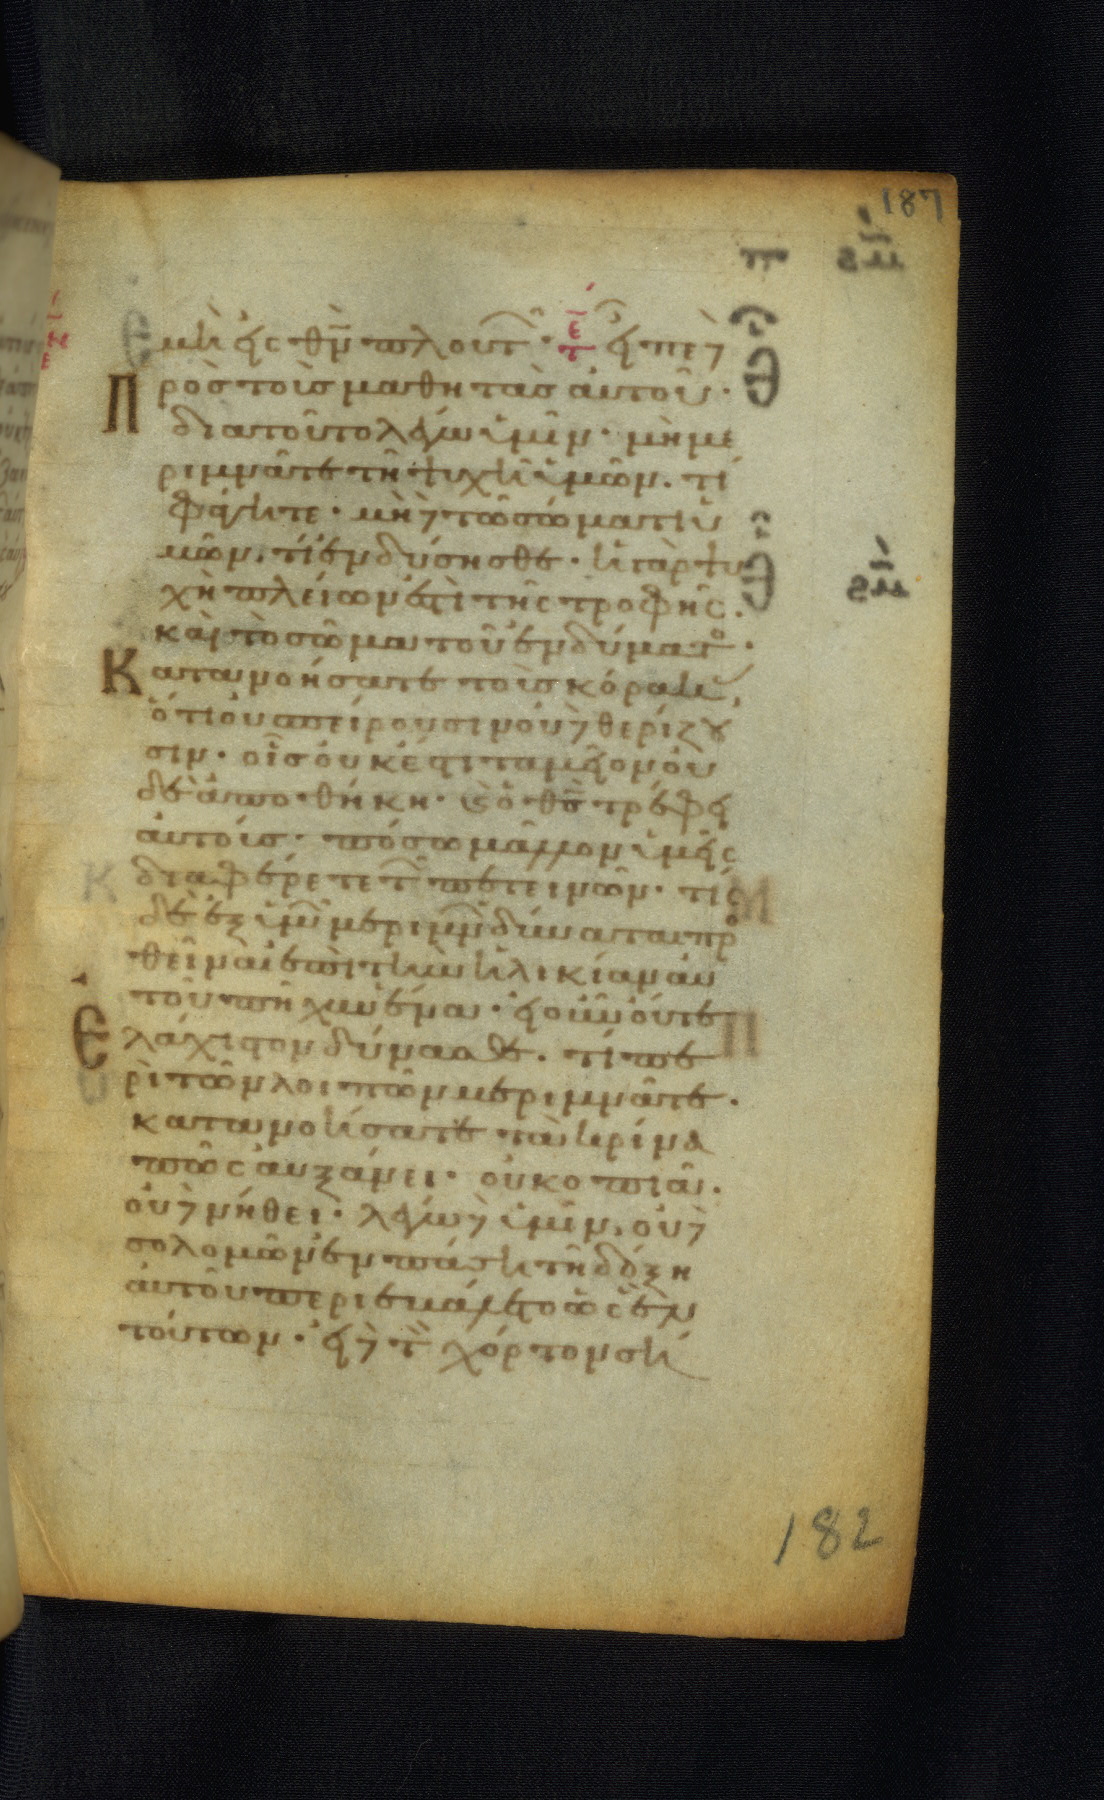 187
μὴ εἰς θν πλουτ · ειπε δ
Προς τοὺς μαθητὰς αὐτοῦ ·
διατοῦτο λέγω ὑμῖν · μὴ με
ριμνᾶτε τῇ ψυχῇ ὑμῶν . τί
φάγητε · μὴ δὲ τῶ σώματι ὑ
μῶν . τί ἐνδύσησθε · ἡ γὰρ ψυ
χὴ πλείων ἐστὶ τῆς τροφῆς .
καὶ τὸ σῶμα τοῦ ἐνδύματο .
Κατανοήσατε τοὺς κόρακας
ὅτι οὐ σπείρουσιν οὐδὲ θερίζου
σιν · οἷς οὐκ ἔστι ταμεῖον οὐ
δὲ ἀποθήκη · καὶ ὁ θς τρέφει
αὐτούς · πόσω μᾶλλον ὑμεῖς
διαφέρετε τ πετεινῶν · τίς
δὲ ἐξ ὑμ μεριμν δύναται προ
θεῖναι ἐπὶ τὴν ἡλικίαν αὐ
τοῦ πῆχυν ἕνα · εἰ οὖν οὔτε
Ελάχιστον δύνασθε . τί πε
ρὶ τῶν λοιπῶν μεριμνᾶτε .
κατανοήσατε τὰ κρίνα
πῶς αὐξάνει · οὐ κοπιᾶ .
οὐδὲ νήθει · λέγω δὲ ὑμῖν . οὐδὲ
σολομῶν ἐν πάσῃ τῇ δόξη
αὐτοῦ περιεβάλετο ὡς ἓν
τούτων · εἰ δὲ τ χόρτον σή
182